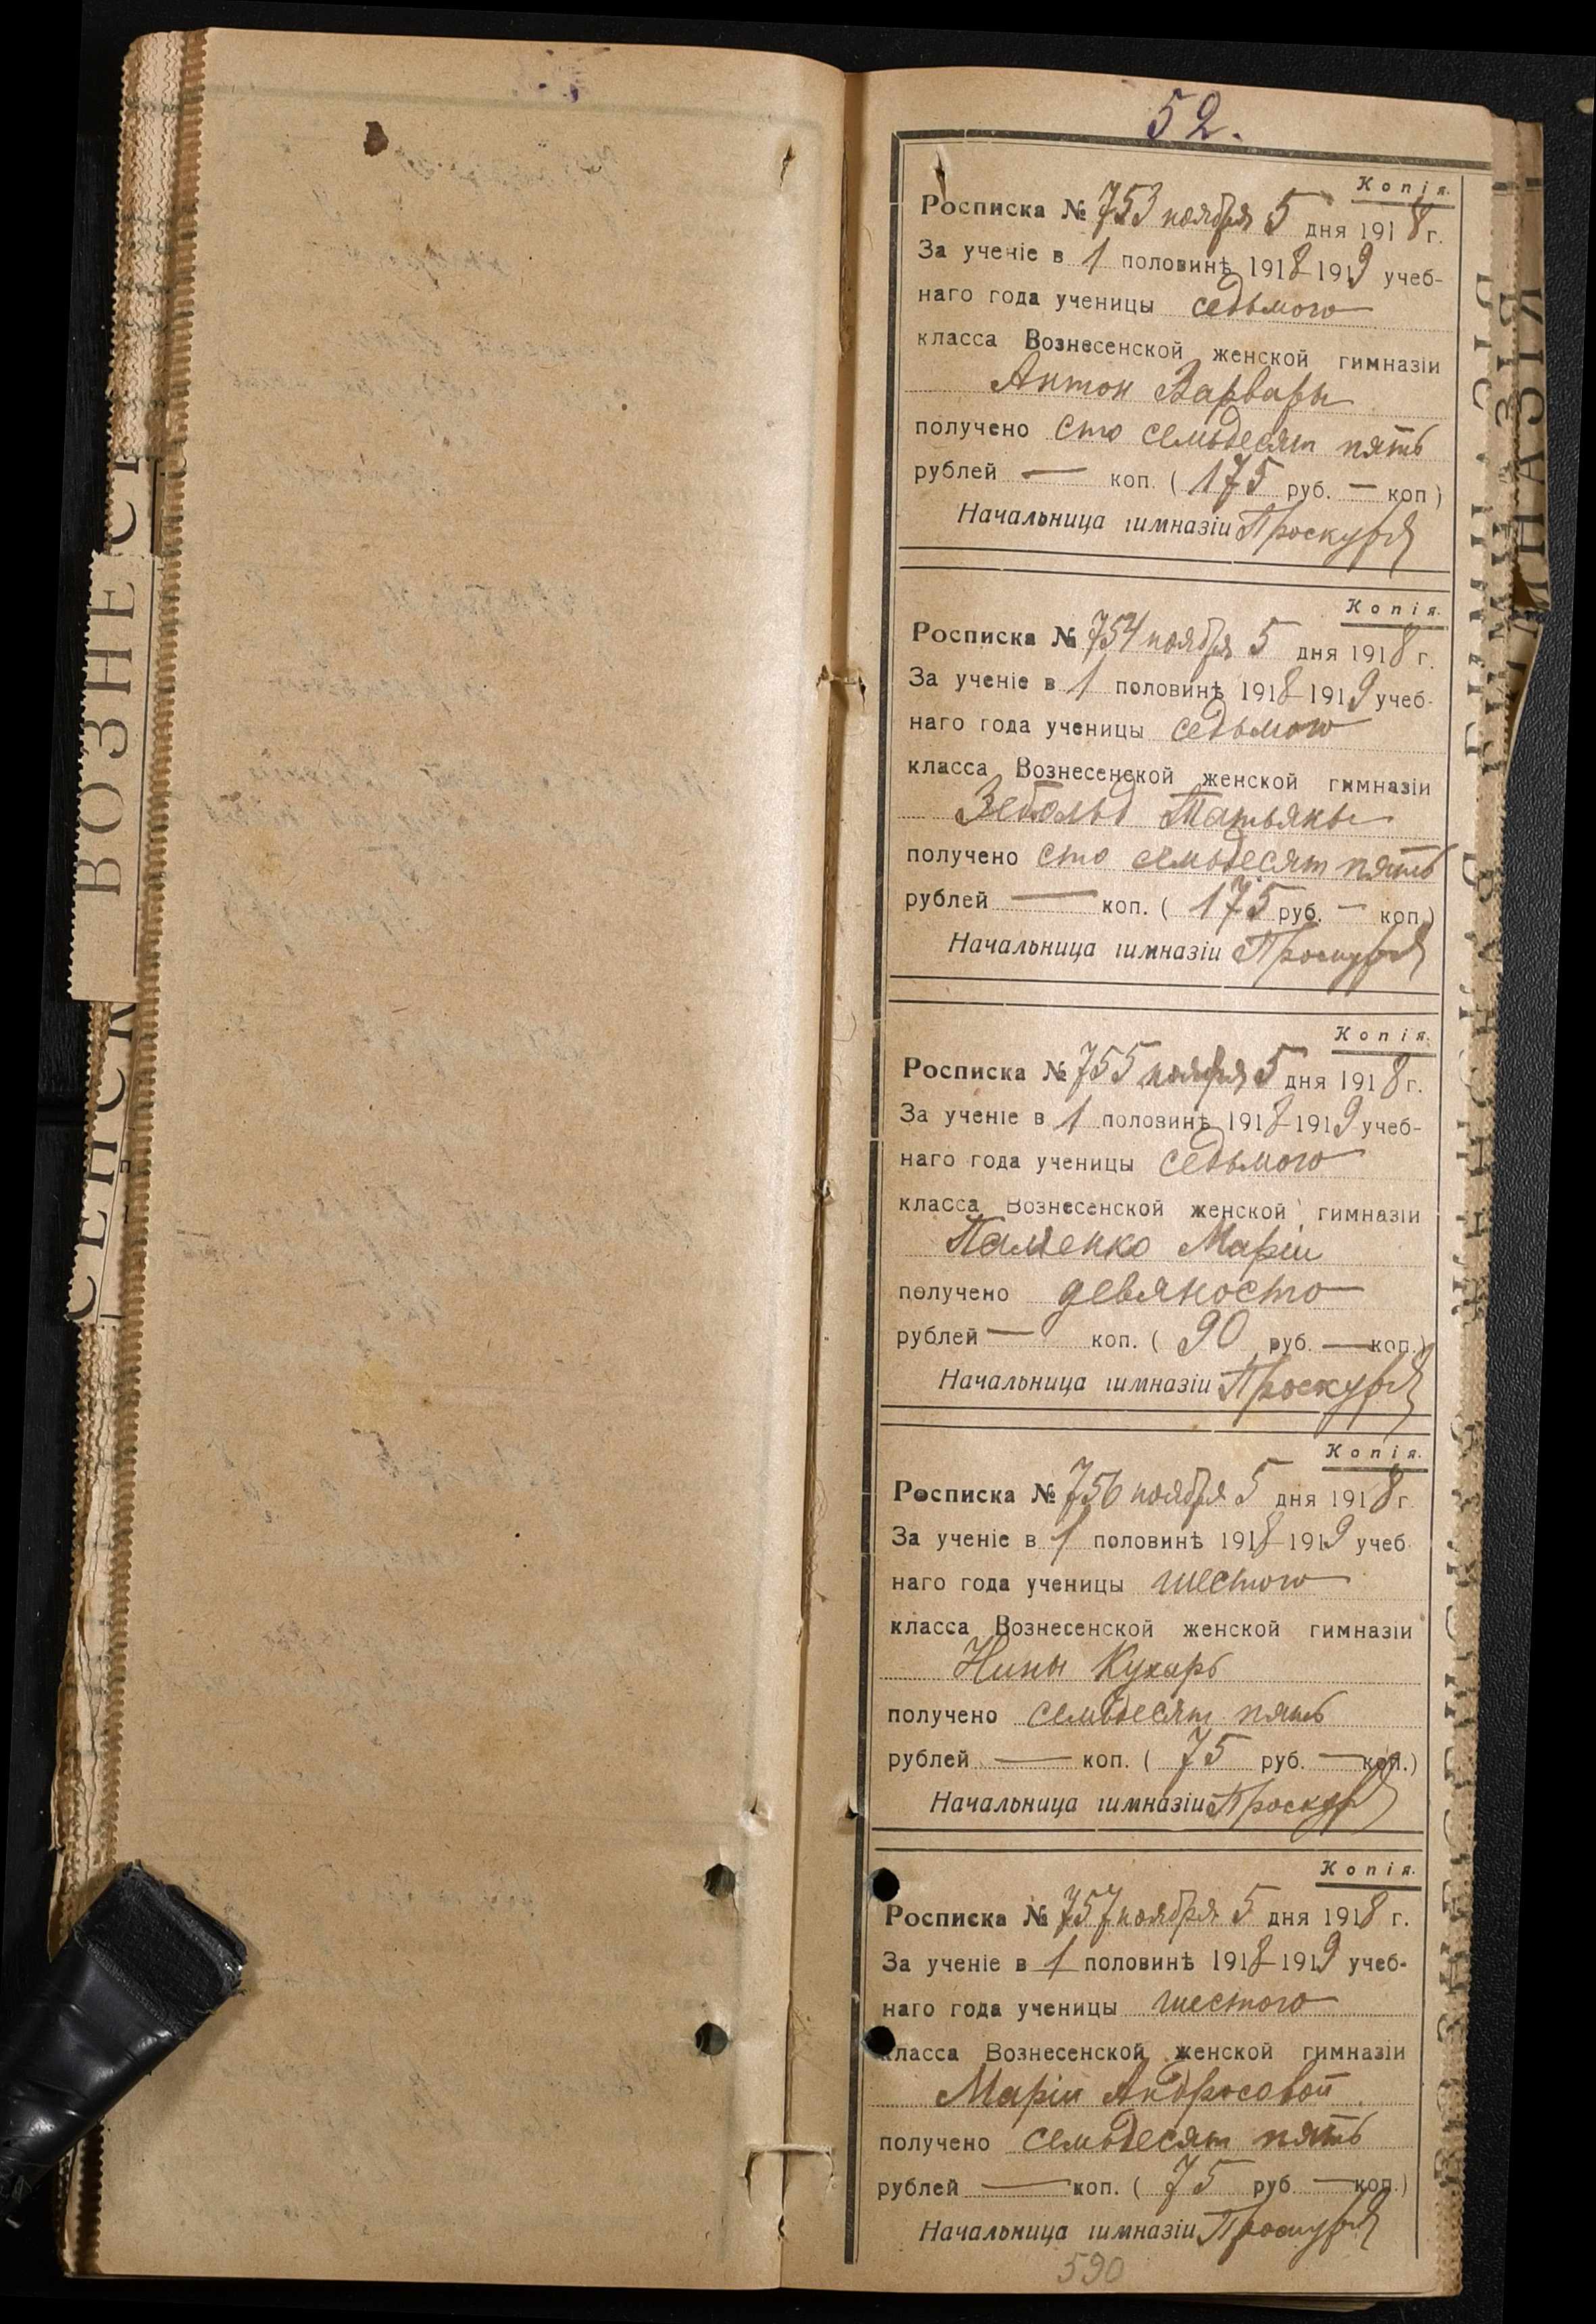 52.
Копія.
Росписка № 753 ноября 5 дня 1918 г.
За ученіе в 1 половинѣ 1918-1919 учеб-
наго года ученицы седьмого
класса Вознесенской женской гимназіи
Антон Варвары
получено сто семьдесят пять
рублей — коп. ( 175 руб. — коп )
Начальница гимназіи Проскур
Копія.
Росписка № 754 ноября 5 дня 1918 г.
За ученіе в 1 половинѣ 1918-1919 учеб-
наго года ученицы седьмого
класса Вознесенской женской гимназіи
Зебольд Татьяны
получено сто семьдесят пять
рублей — коп. ( 175 руб. — коп )
Начальница гимназіи Проскур
Копія.
Росписка № 755 ноября 5 дня 1918 г.
За ученіе в 1 половинѣ 1918-1919 учеб-
наго года ученицы седьмого
класса Вознесенской женской гимназіи
Маріи
получено девяносто
рублей — коп. ( 90 руб. — коп.)
Начальница гимназіи Проскур
Копія.
Росписка № 756 ноября 5 дня 1918 г.
За ученіе в 1 половинѣ 1918-1919 учеб
наго года ученицы шестого
класса Вознесенской женской гимназіи
Нины Кухарь
получено семьдесят пять
рублей — коп. ( 75 руб. — коп.)
Начальница гимназіи Проскур
Копія.
Росписка № 757 ноября 5 дня 1918 г.
За ученіе в 1 половинѣ 1918-1919 учеб-
наго года ученицы шестого
класса Вознесенской женской гимназіи
Маріи Андросовой
получено семьдесят пять
рублей — коп. ( 75 руб — коп.)
Начальница гимназіи Проскур
590